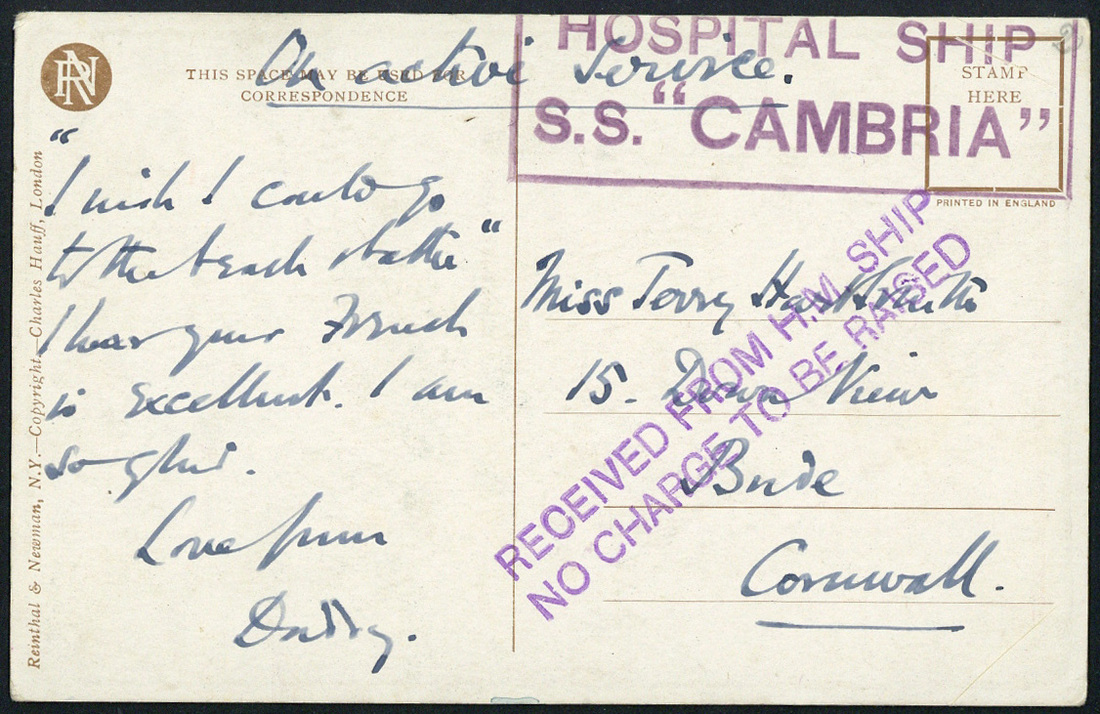 On active Service.
HOSPITAL SHIP
S.S. "CAMBRIA"
RN
THIS SPACE MAY BE USED FOR
CORRESPONDENCE
STAMP
HERE
PRINTED IN ENGLAND
"I wish I could go
to the beach & bathe"
I hear your French
is excellent. I am
so glad.
Love from
Daddy.
Miss Terry
15. Down View
Bude
Cornwall.
RECEIVED FROM H.M. SHIP
NO CHARGE TO BE RAISED
Reinthal & Newman, N.Y.—Copyright—Charles Hauff, London